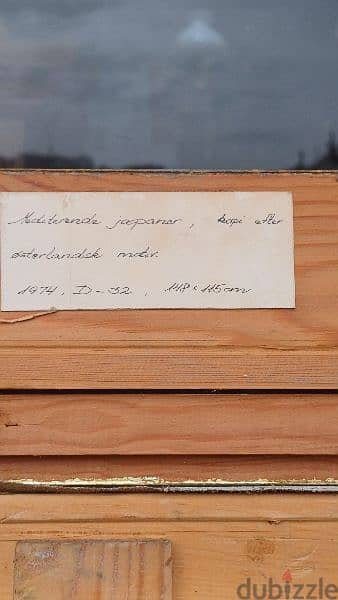 Mediterende japaner, kopi efter
østerlandsk motiv.
1974, D-32, 148 x 115 cm
dubizzle